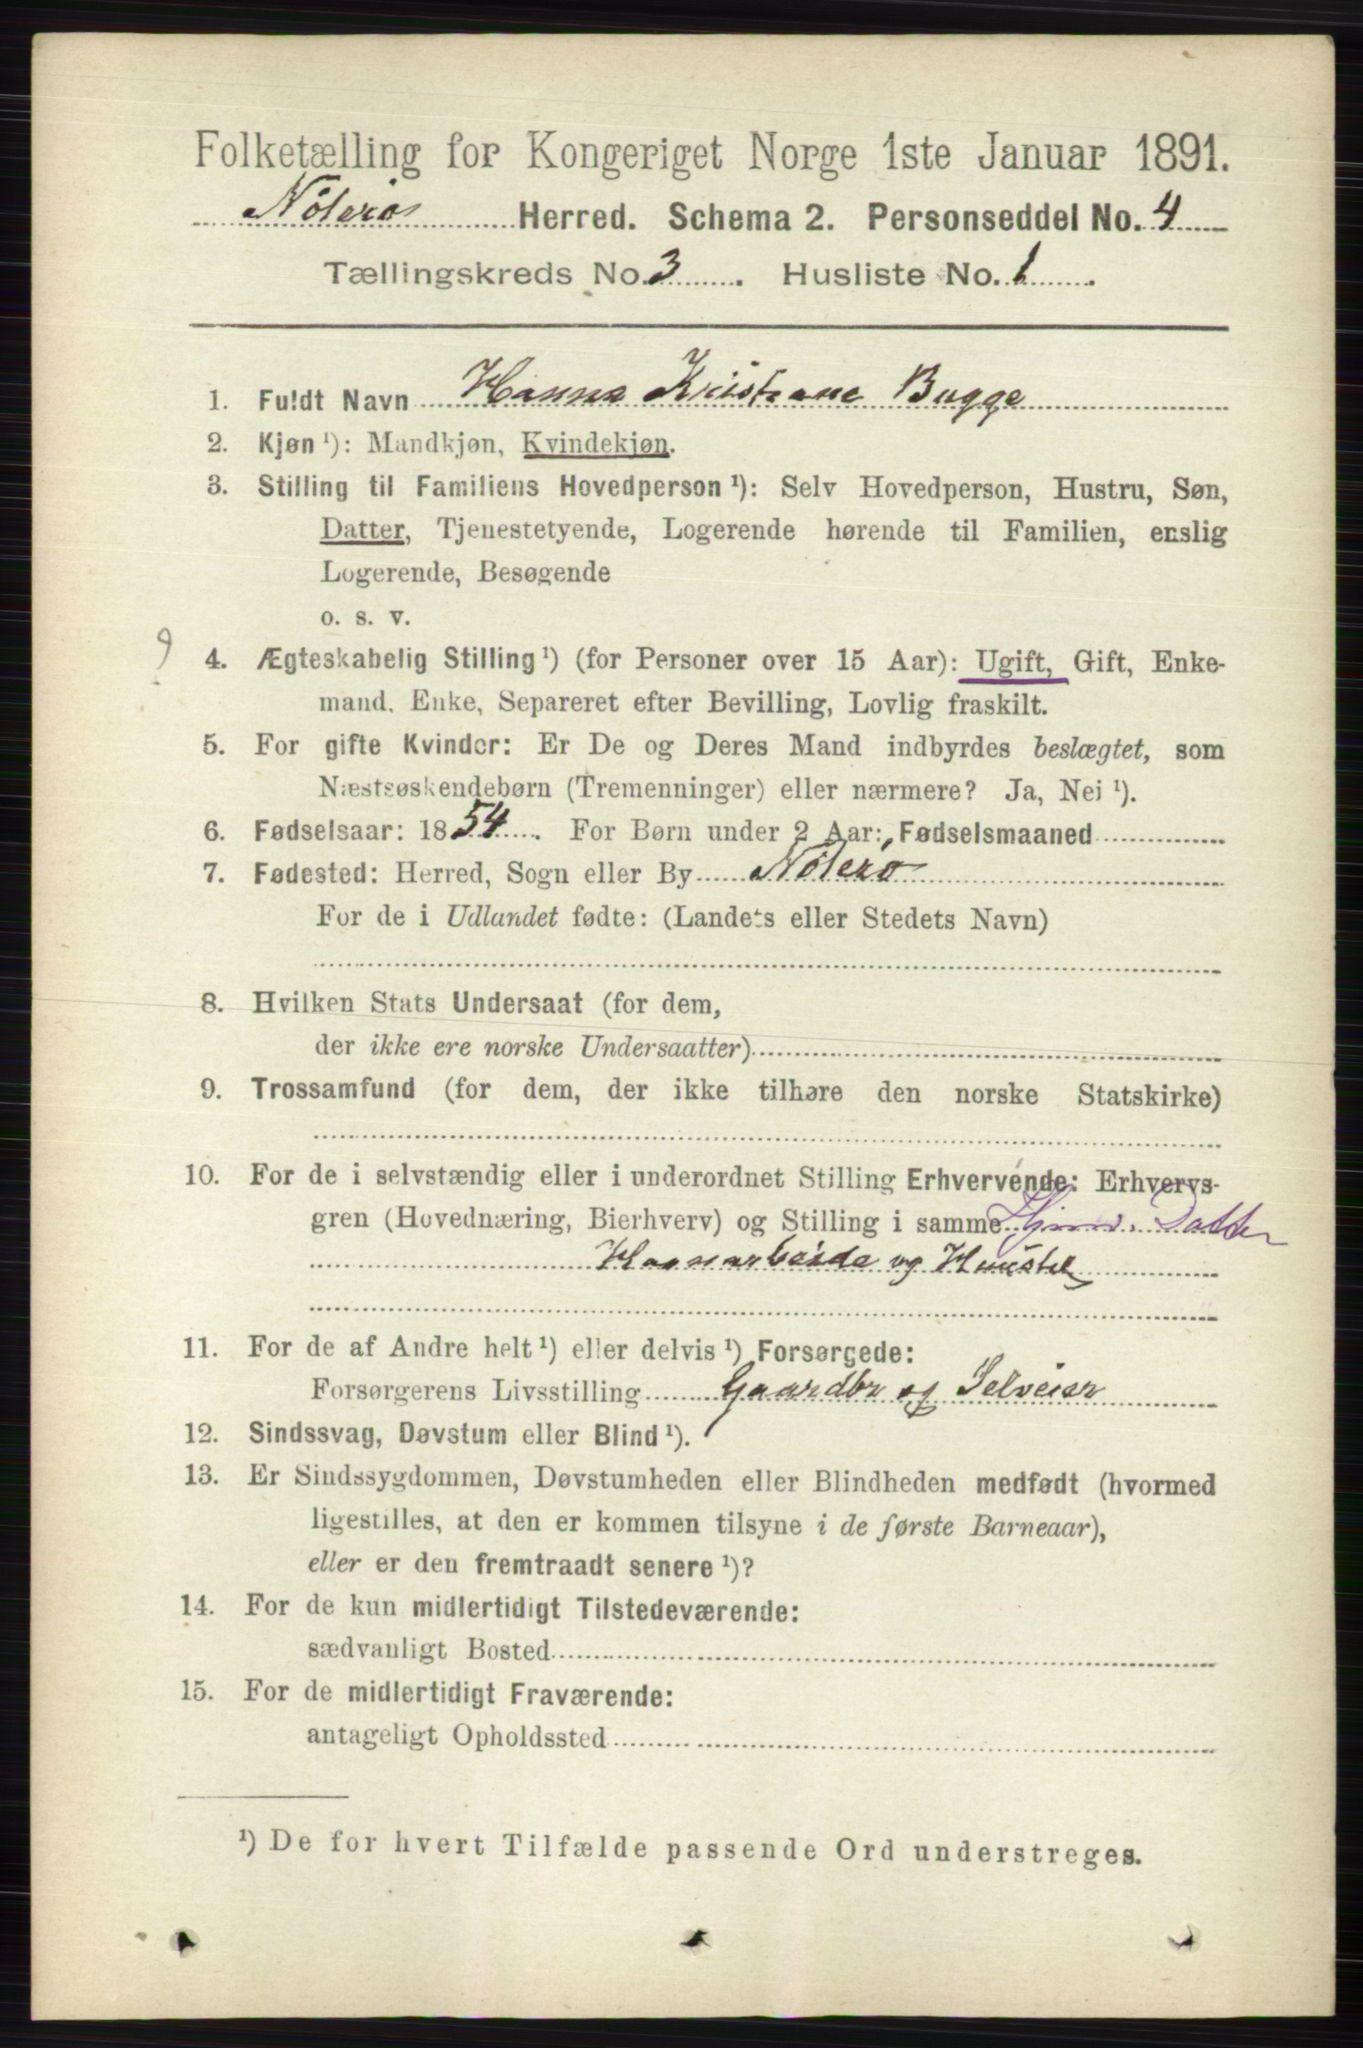 Folketælling for Kongeriget Norge 1ste Januar 1891.
Nøterø Herred. Schema 2. Personseddel No. 4
Tællingskreds No. 3. Husliste No. 1.
1. Fuldt Navn Hanna Kristiane Bugge
2. Kjøn ¹): Mandkjøn, Kvindekjøn.
3. Stilling til Familiens Hovedperson ¹): Selv Hovedperson, Hustru, Søn,
Datter, Tjenestetyende, Logerende hørende til Familien, enslig
Logerende, Besøgende
o. s. v.
9
4. Ægteskabelig Stilling ¹) (for Personer over 15 Aar): Ugift, Gift, Enke-
mand, Enke, Separeret efter Bevilling, Lovlig fraskilt.
5. For gifte Kvinder: Er De og Deres Mand indbyrdes beslægtet, som
Næstsøskendebørn (Tremenninger) eller nærmere? Ja, Nei ¹).
6. Fødselsaar: 1854. For Børn under 2 Aar: Fødselsmaaned
7. Fødested: Herred, Sogn eller By Nøterø
For de i Udlandet fødte: (Landets eller Stedets Navn)
8. Hvilken Stats Undersaat (for dem,
der ikke ere norske Undersaatter)
9. Trossamfund (for dem, der ikke tilhøre den norske Statskirke)
10. For de i selvstændig eller i underordnet Stilling Erhvervende: Erhvervs-
gren (Hovednæring, Bierhverv) og Stilling i samme Hjmv. Datter
Haanarbeide og Huustel
11. For de af Andre helt ¹) eller delvis ¹) Forsørgede:
Forsørgerens Livsstilling Gaardbr og Selveier
12. Sindssvag, Døvstum eller Blind ¹).
13. Er Sindssygdommen, Døvstumheden eller Blindheden medfødt (hvormed
ligestilles, at den er kommen tilsyne i de første Barneaar),
eller er den fremtraadt senere ¹)?
14. For de kun midlertidigt Tilstedeværende:
sædvanligt Bosted
15. For de midlertidigt Fraværende:
antageligt Opholdssted
¹) De for hvert Tilfælde passende Ord understreges.